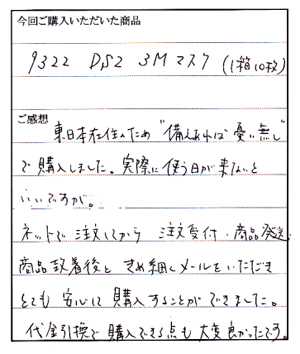 今回ご購入いただいた商品
9322 DS2 3Mマスク (1箱10枚)
ご感想
東日本在住のため"備えあれば憂い無し"
で購入しました。実際に使う日が来ないと
いいですが。
ネットで注文してから 注文受付・商品発送・
商品到着後と きめ細しメールをいただき
とても安心して購入することができました。
代金引換で購入できる点も大変良かったです。